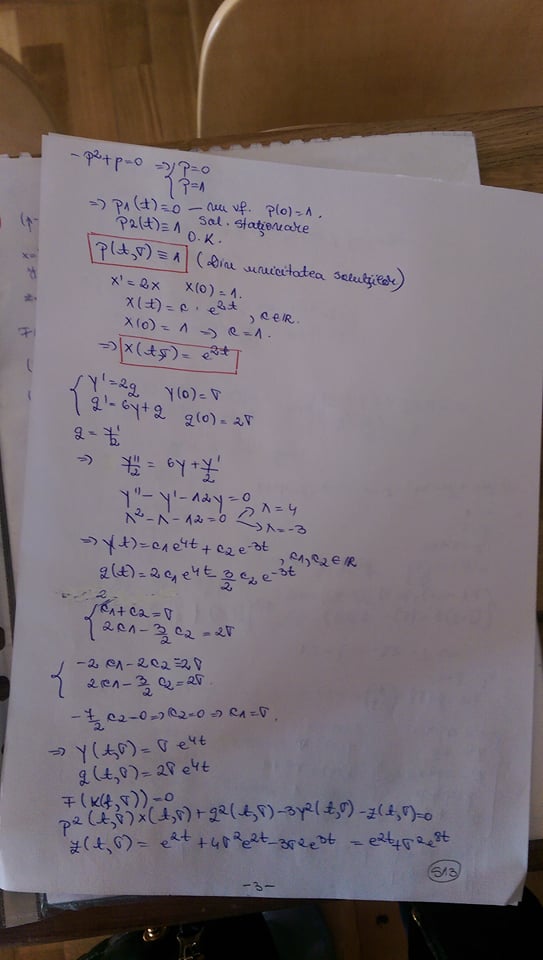 -p²+p=0 ⇒ { p=0
p=1
⇒ p1(t)=0 – nu vf. p(0)=1.
p2(t)≡1 sol. staționare
O.K.
p(t,σ) ≡ 1 (Din unicitatea soluțiilor)
x' = 2x x(0)=1.
x(t) = c · e^2t, c∈R.
x(0) = 1 ⇒ c=1.
⇒ x(t,σ) = e^2t
{ y'=2q y(0)=σ
q'=6y+q q(0)=2σ
q = y'/2
⇒ y''/2 = 6y + y'/2
y'' - y' - 12y = 0
λ² - λ - 12 = 0 → λ=4
→ λ=-3
⇒ y(t) = c1 e^4t + c2 e^-3t, c1,c2∈R
q(t) = 2c1 e^4t - 3/2 c2 e^-3t
{ c1+c2=σ
2c1 - 3/2 c2 = 2σ
{ -2c1-2c2=2σ
2c1 - 3/2 c2=2σ.
-7/2 c2=0 ⇒ c2=0 ⇒ c1=σ.
⇒ y(t,σ) = σ e^4t
q(t,σ) = 2σ e^4t
F(k(t,σ))=0
p²(t,σ)x(t,σ)+q²(t,σ)-3y²(t,σ)-z(t,σ)=0
z(t,σ) = e^2t + 4σ²e^2t - 3σ²e^3t = e^2t+σ²e^8t
S13
-3-